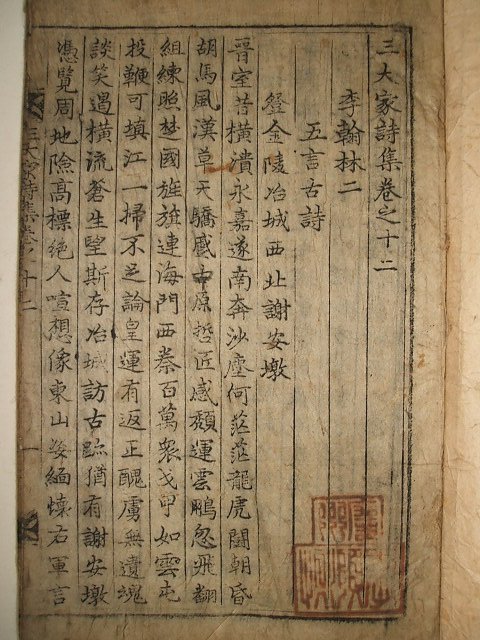 三大家詩集卷之十二
李翰林二
五言古詩
登金陵冶城西北謝安墩
晉室昔橫潰永嘉遂南奔沙塵何茫茫龍虎鬪朝昏
胡馬風漢草天驕蹙中原哲匠感頹運雲鵬忽飛翻
組練照楚國旌旗連海門西秦百萬衆戈甲如雲屯
投鞭可塡江一掃不足論皇運有返正醜虜無遺魂
談笑遏橫流蒼生望斯存冶城訪古跡猶有謝安墩
憑覽周地險高標絕人喧想像東山姿緬懷右軍言
三大家詩集卷之十二